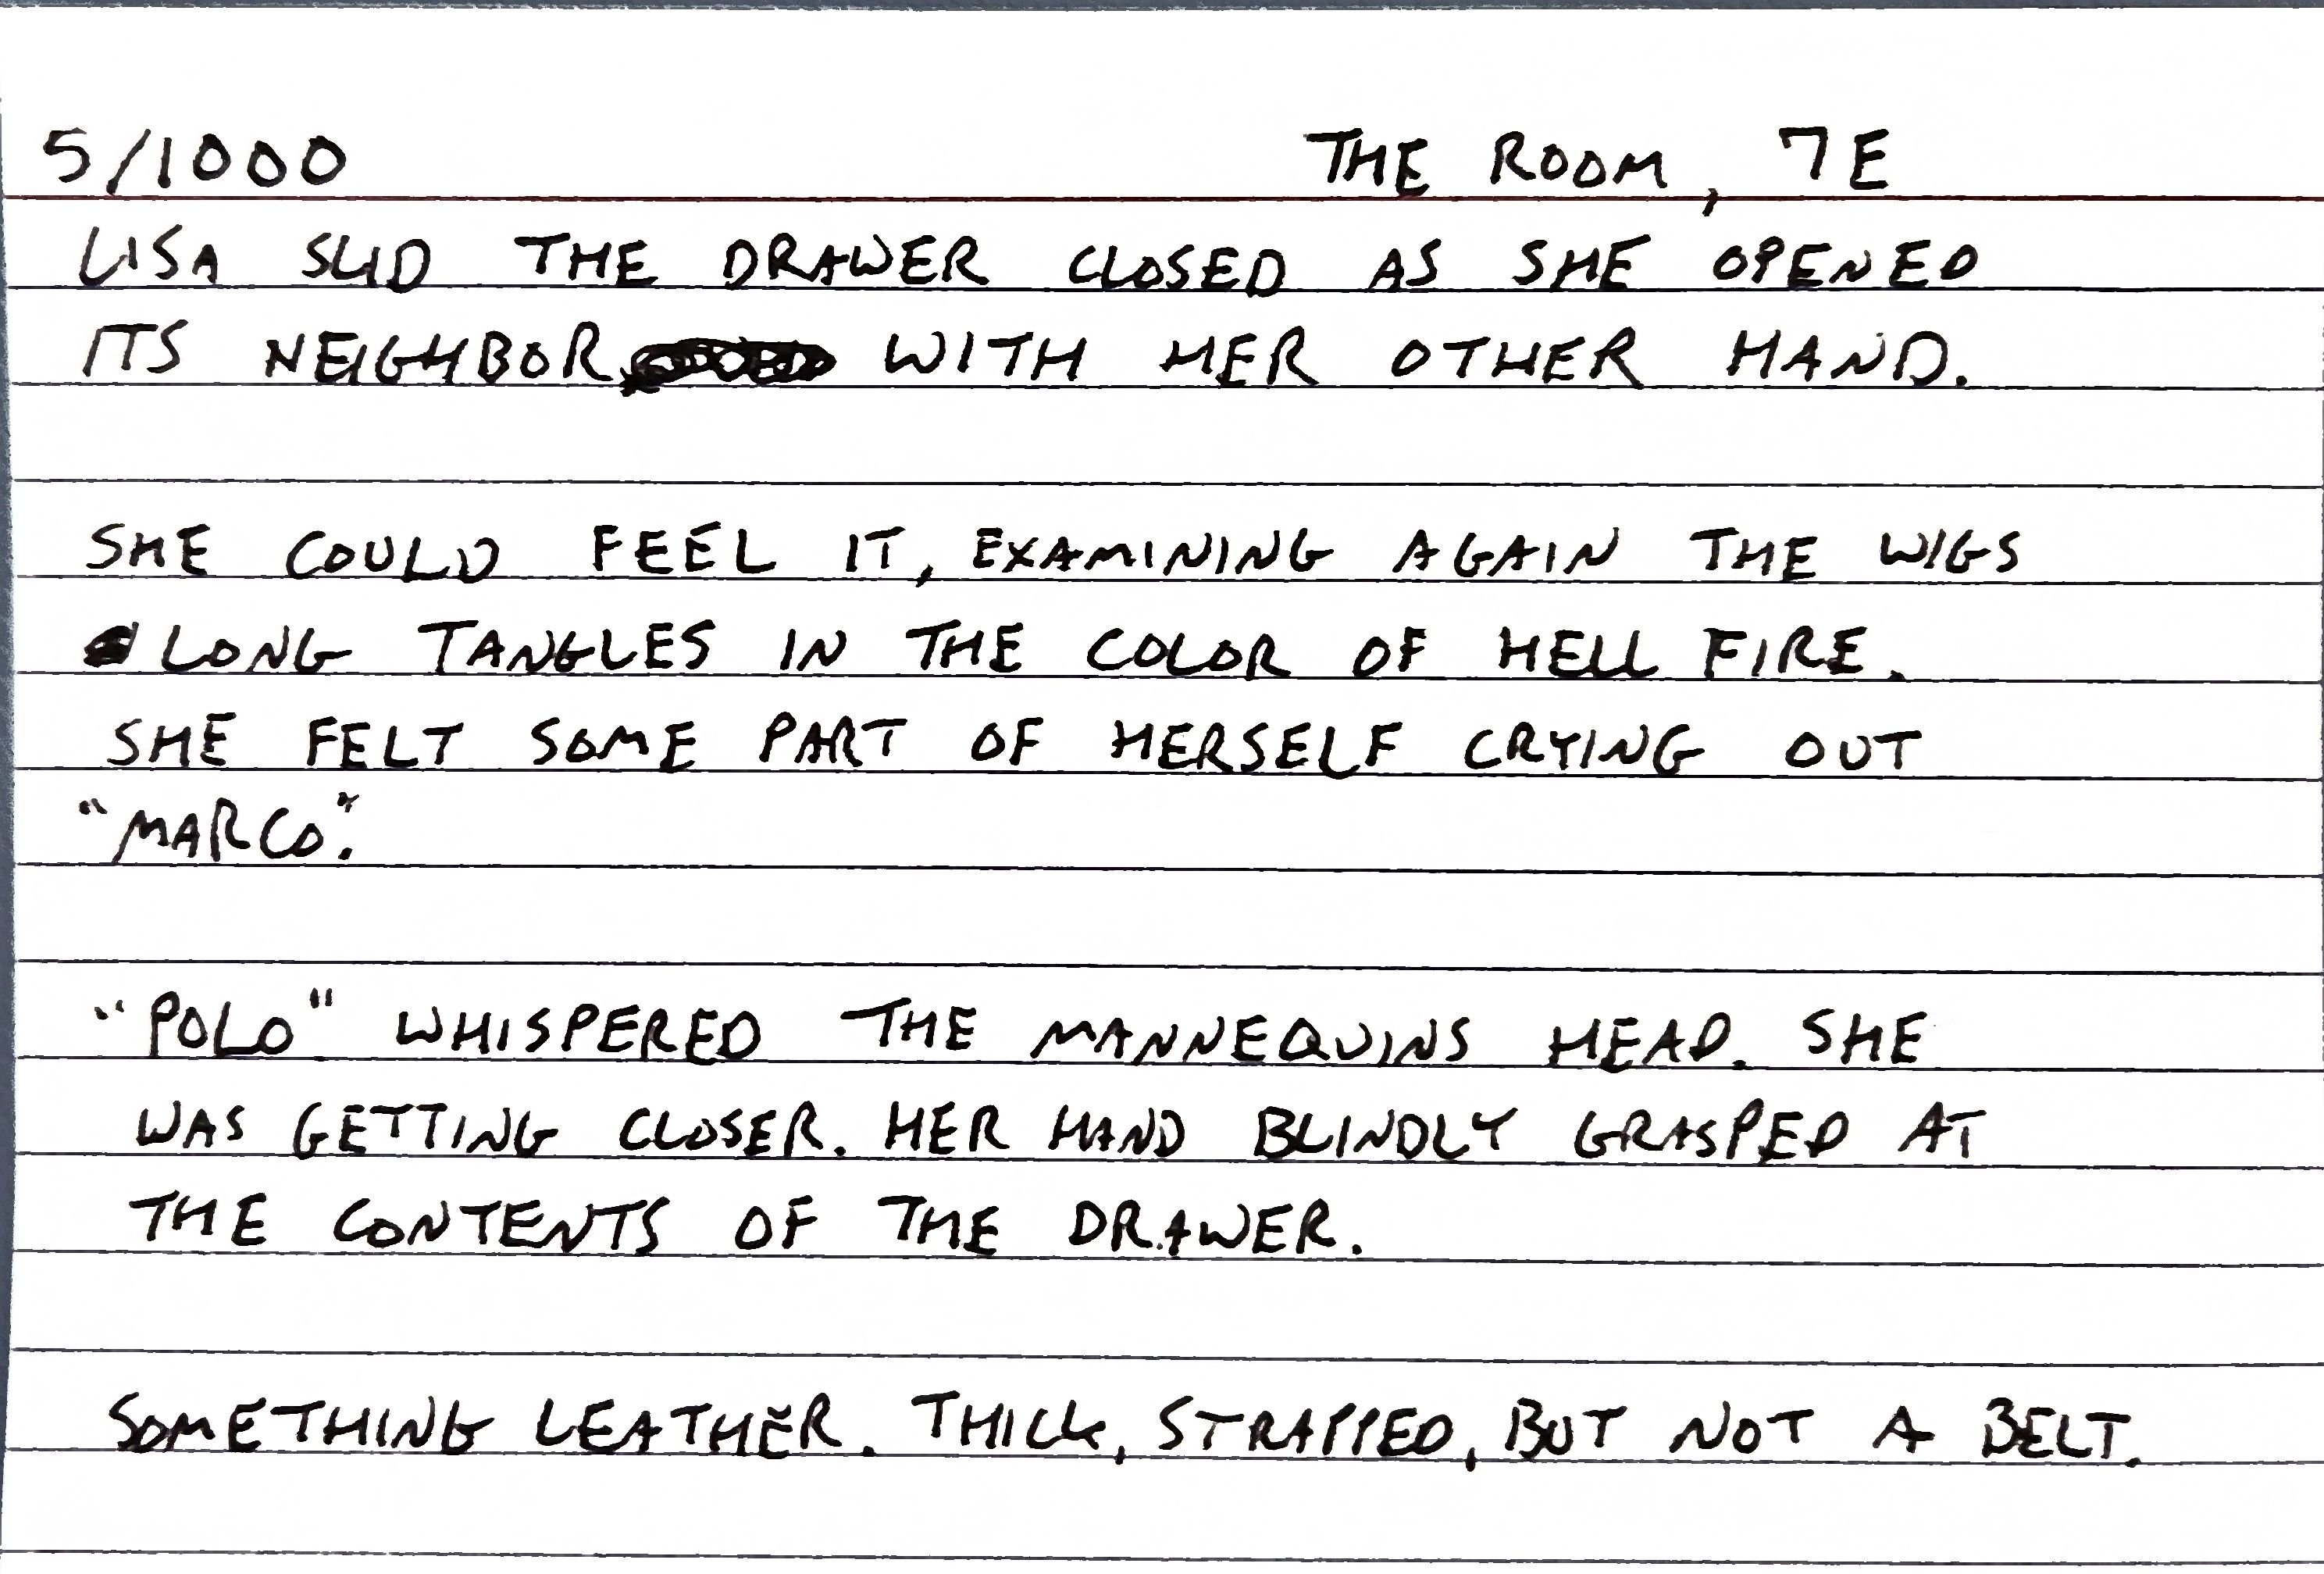 5/1000 THE ROOM, 7E
LISA SLID THE DRAWER CLOSED AS SHE OPENED
ITS NEIGHBOR WITH HER OTHER HAND.
SHE COULD FEEL IT, EXAMINING AGAIN THE WIGS
LONG TANGLES IN THE COLOR OF HELL FIRE.
SHE FELT SOME PART OF HERSELF CRYING OUT
"MARCO".
"POLO" WHISPERED THE MANNEQUINS HEAD. SHE
WAS GETTING CLOSER. HER HAND BLINDLY GRASPED AT
THE CONTENTS OF THE DRAWER.
SOMETHING LEATHER. THICK, STRAPPED, BUT NOT A BELT.